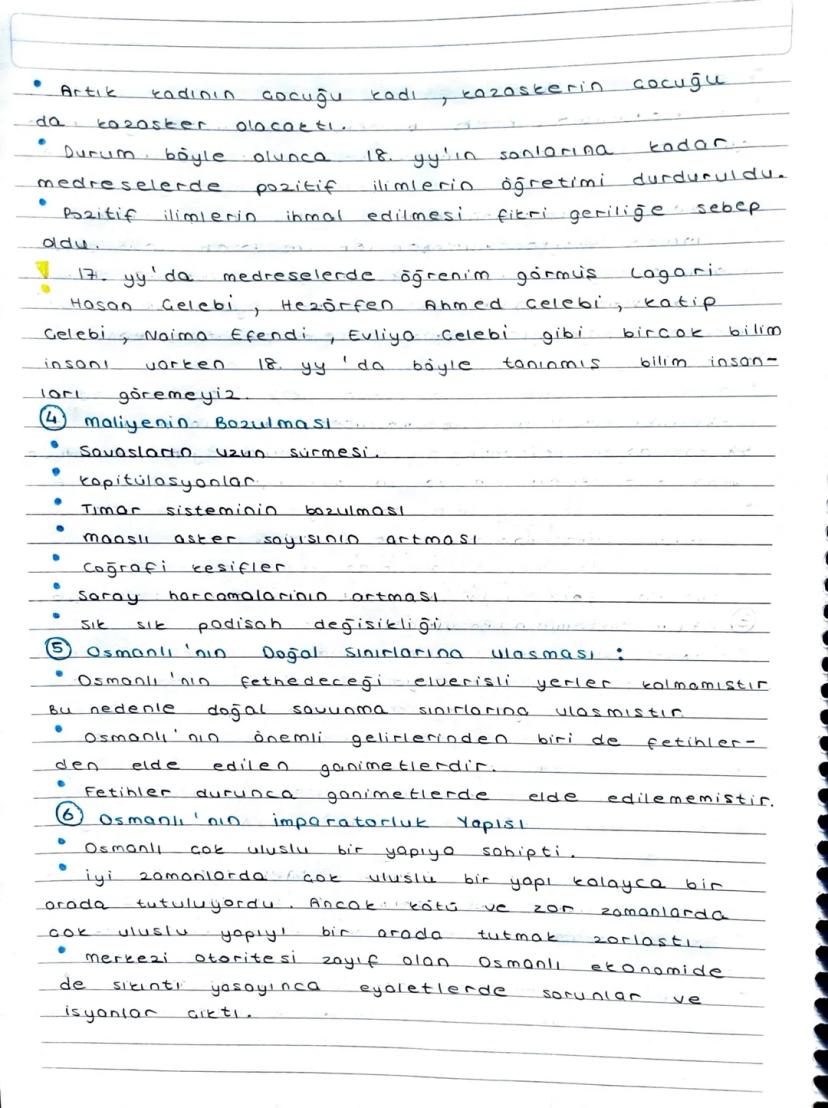 • Artık kadının çocuğu kadı, kazaskerin çocuğu
da kazasker olacaktı.
• Durum böyle olunca 18. yy'ın sonlarına kadar
medreselerde pozitif ilimlerin öğretimi durduruldu.
• Pozitif ilimlerin ihmal edilmesi fikri geriliğe sebep
oldu.
! 17. yy'da medreselerde öğrenim görmüş Lagari
Hasan Çelebi, Hezârfen Ahmed Çelebi, Katip
Çelebi, Naima Efendi, Evliya Çelebi gibi birçok bilim
insanı varken 18. yy'da böyle tanınmış bilim insan-
ları göremeyiz.
④ Maliyenin Bozulması
• Savaşların uzun sürmesi.
• Kapitülasyonlar
• Tımar sisteminin bozulması
• Maaşlı asker sayısının artması
• Coğrafi keşifler
• Saray harcamalarının artması
• Sık sık padişah değişikliği.
⑤ Osmanlı'nın Doğal Sınırlarına ulaşması :
• Osmanlı'nın fethedeceği elverişli yerler kalmamıştır
Bu nedenle doğal savunma sınırlarına ulaşmıştır.
• Osmanlı'nın önemli gelirlerinden biri de fetihler-
den elde edilen ganimetlerdir.
• Fetihler durunca ganimetlerde elde edilememiştir.
⑥ Osmanlı'nın imparatorluk Yapısı
• Osmanlı çok uluslu bir yapıya sahipti.
• iyi zamanlarda çok uluslu bir yapı kolayca bir
arada tutuluyordu. Ancak kötü ve zor zamanlarda
çok uluslu yapıyı bir arada tutmak zorlaştı.
• Merkezi otoritesi zayıf olan Osmanlı ekonomide
de sıkıntı yaşayınca eyaletlerde sorunlar ve
isyanlar çıktı.